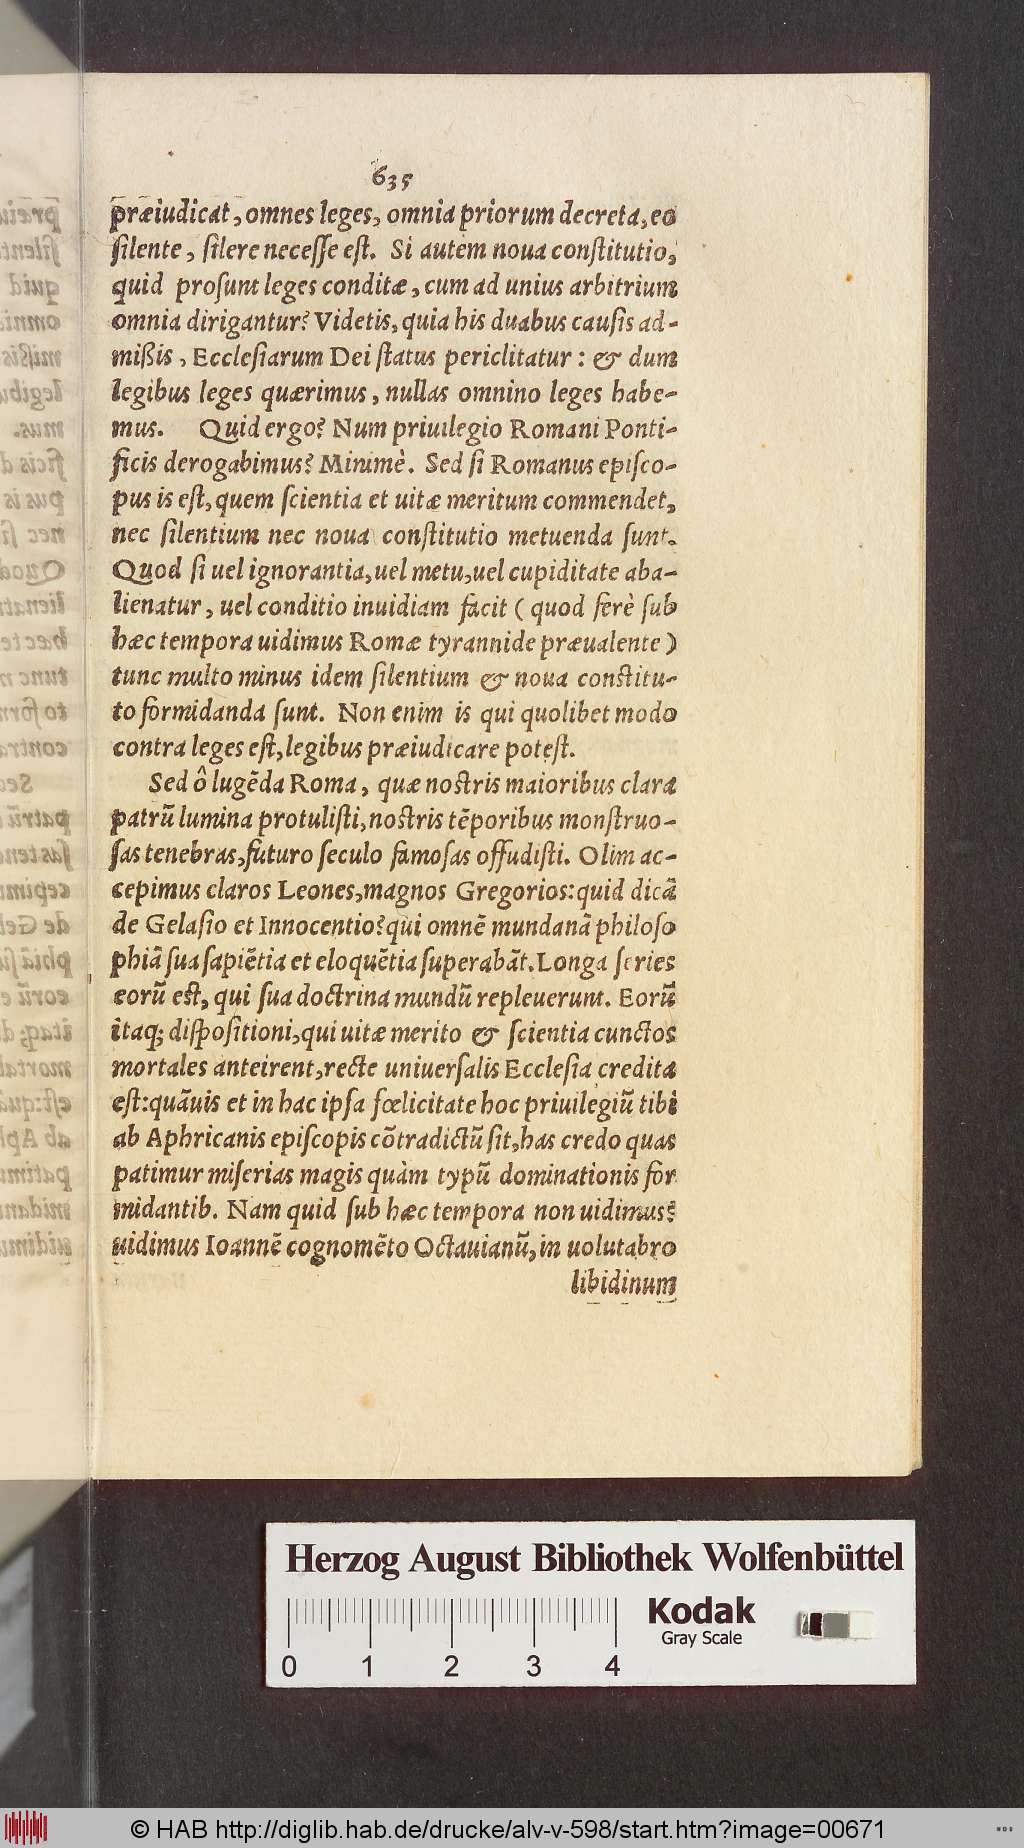 635
præiudicat, omnes leges, omnia priorum decreta, eo
ſilente, ſilere neceſſe eſt. Si autem noua conſtitutio,
quid proſunt leges conditæ, cum ad unius arbitrium
omnia dirigantur? Videtis, quia his duabus cauſis ad-
mißis, Eccleſiarum Dei ſtatus periclitatur: & dum
legibus leges quærimus, nullas omnino leges habe-
mus. Quid ergo? Num priuilegio Romani Ponti-
ficis derogabimus? Minimè. Sed ſi Romanus epiſco-
pus is eſt, quem ſcientia et uitæ meritum commendet,
nec ſilentium nec noua conſtitutio metuenda ſunt.
Quod ſi uel ignorantia, uel metu, uel cupiditate aba-
lienatur, uel conditio inuidiam facit (quod ferè ſub
hæc tempora uidimus Romæ tyrannide præualente)
tunc multo minus idem ſilentium & noua conſtitu-
to formidanda ſunt. Non enim is qui quolibet modo
contra leges eſt, legibus præiudicare poteſt.
Sed ô lugẽda Roma, quæ noſtris maioribus clara
patrũ lumina protuliſti, noſtris tẽporibus monſtruo-
ſas tenebras, futuro ſeculo famoſas offudiſti. Olim ac-
cepimus claros Leones, magnos Gregorios: quid dicã
de Gelaſio et Innocentio? qui omnẽ mundanã philoſo
phiã ſua ſapiẽtia et eloquẽtia ſuperabãt. Longa ſeries
eorũ eſt, qui ſua doctrina mundũ repleuerunt. Eorũ
itaq; diſpoſitioni, qui uitæ merito & ſcientia cunctos
mortales anteirent, recte uniuerſalis Eccleſia credita
eſt: quãuis et in hac ipſa fœlicitate hoc priuilegiũ tibi
ab Aphricanis epiſcopis cõtradictũ ſit, has credo quas
patimur miſerias magis quàm typũ dominationis for
midantib. Nam quid ſub hæc tempora non uidimus?
uidimus Ioannẽ cognomẽto Octauianũ, in uolutabro
libidinum
Herzog August Bibliothek Wolfenbüttel
Kodak
Gray Scale
0 1 2 3 4
© HAB http://diglib.hab.de/drucke/alv-v-598/start.htm?image=00671